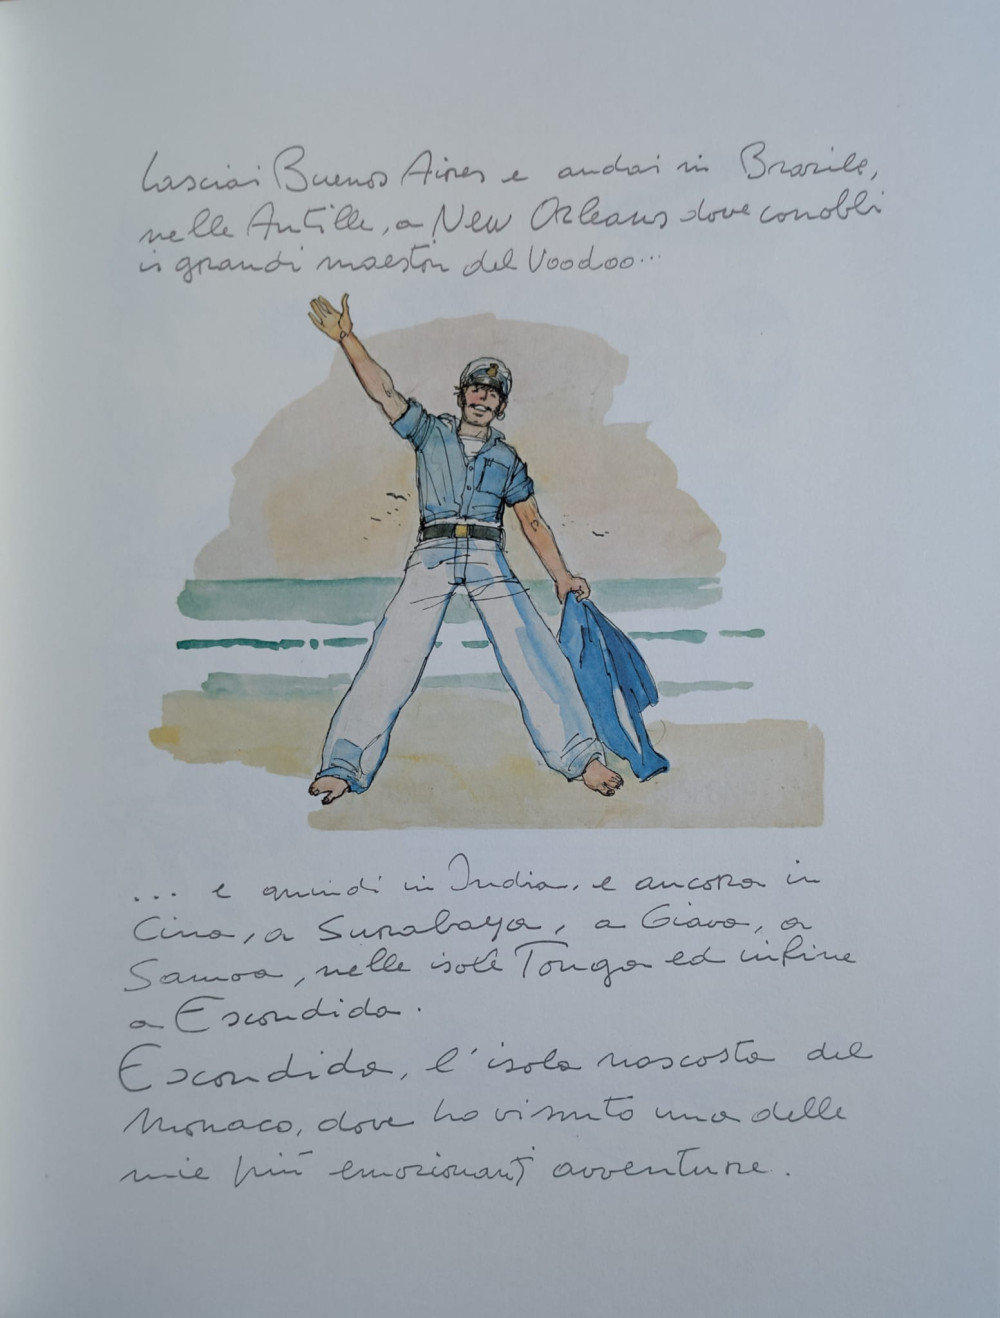 Lasciai Buenos Aires e andai in Brasile,
nelle Antille, a New Orleans dove conobbi
i grandi maestri del Voodoo...
... e quindi in India, e ancora in
Cina, a Surabaya, a Giava, a
Samoa, nelle isole Tonga ed infine
a Escondida.
Escondida, l'isola nascosta del
Monaco, dove ho vissuto una delle
mie più emozionanti avventure.